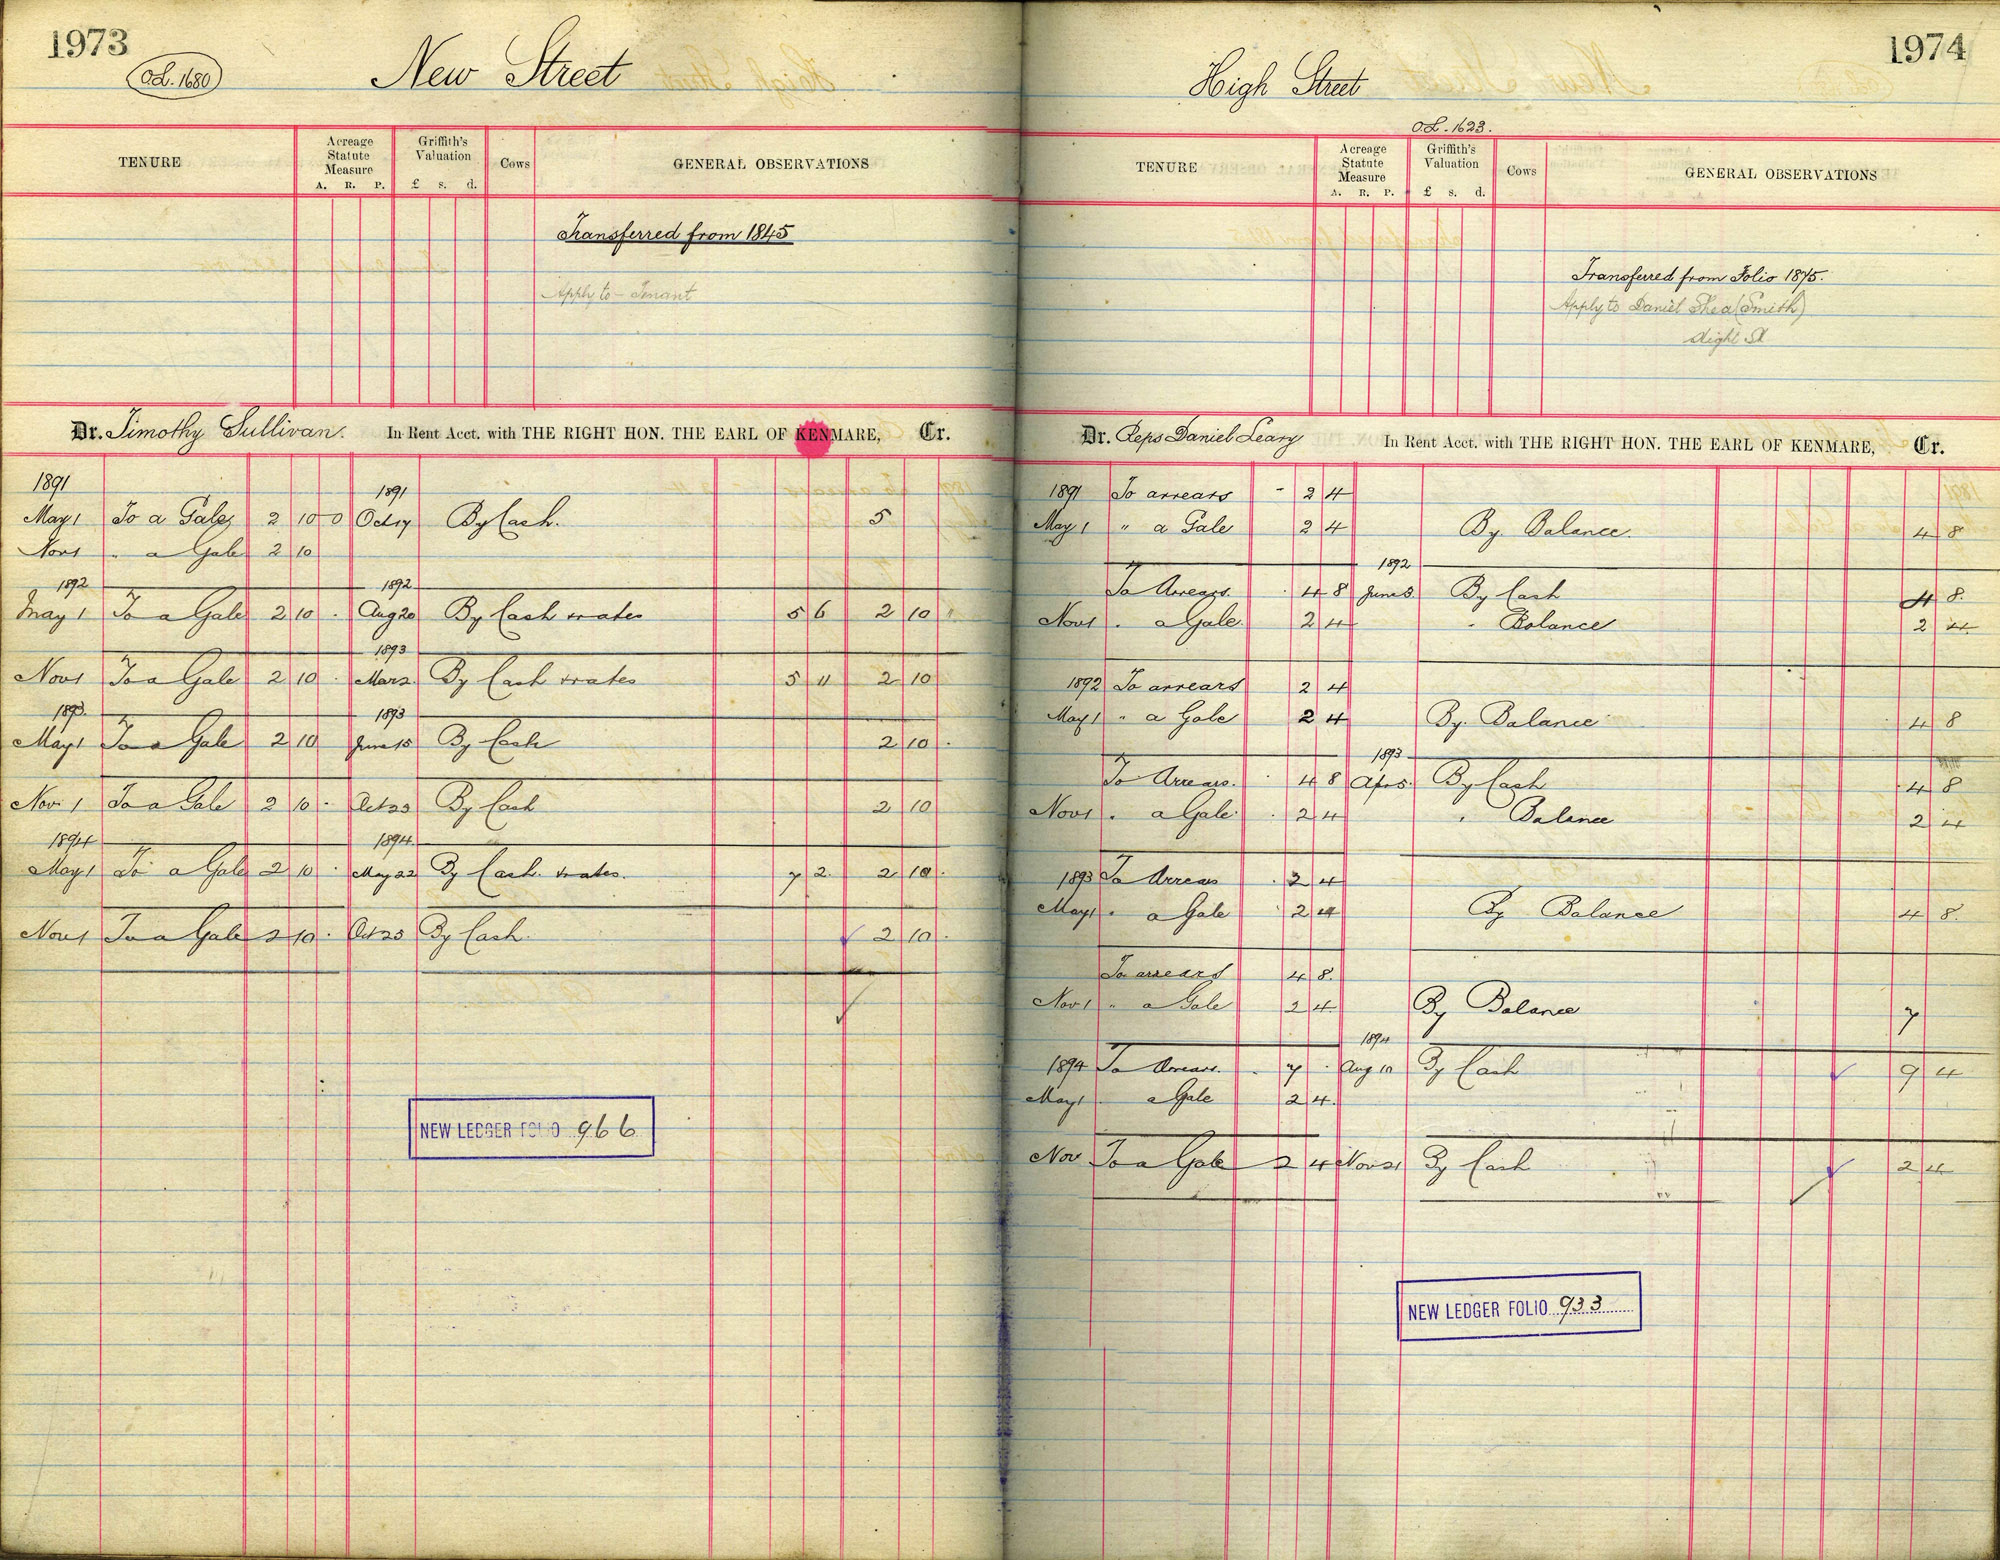 1973
O.L. 1680
New Street
TENURE
Acreage Statute Measure
A. R. P.
Griffith's Valuation
£ s. d.
Cows
GENERAL OBSERVATIONS
Transferred from 1845
Apply to - Tenant
Dr. Timothy Sullivan. In Rent Acct. with THE RIGHT HON. THE EARL OF KENMARE, Cr.
1891 1891
May 1 To a Gale 2 10 0 Oct 17 By Cash. 5
Nov 1 " a Gale 2 10
1892 1892
May 1 To a Gale 2 10 - Aug 20 By Cash + rates 5 6 2 10 "
1893
Nov 1 To a Gale 2 10 - Mar 2 By Cash + rates 5 11 2 10
1893. 1893
May 1 To a Gale 2 10 June 15 By Cash 2 10 -
Nov 1 To a Gale 2 10 - Oct 23 By Cash 2 10
1894 1894
May 1 To a Gale 2 10 - May 22 By Cash + rates. 7 2 2 10 -
Nov 1 To a Gale 2 10 - Oct 23 By Cash 2 10 -
NEW LEDGER FOLIO 966
1974
High Street
O.L. 1623.
TENURE
Acreage Statute Measure
A. R. P.
Griffith's Valuation
£ s. d.
Cows
GENERAL OBSERVATIONS
Transferred from Folio 1875.
Apply to Daniel Shea (Smith)
High St
Dr. Reps Daniel Leary In Rent Acct. with THE RIGHT HON. THE EARL OF KENMARE, Cr.
1891 To arrears - 2 4
May 1 " a Gale 2 4 By Balance. 4 8
1892
To Arrears. - 4 8 June 3 By Cash 4 8
Nov 1 " a Gale 2 4 " Balance 2 4
1892 To arrears 2 4
May 1 " a Gale 2 4 By Balance 4 8
1893
To Arrears. - 4 8 Apr 5 By Cash 4 8
Nov 1 " a Gale - 2 4 " Balance 2 4
1893 To Arrears - 2 4
May 1 " a Gale 2 4 By Balance 4 8
To arrears 4 8
Nov 1 " a Gale 2 4 By Balance 7
1894
1894 To Arrears. - 7 - Aug 10 By Cash 9 4
May 1 a Gale 2 4
Nov To a Gale 2 4 Nov 21 By Cash 2 4
NEW LEDGER FOLIO 933